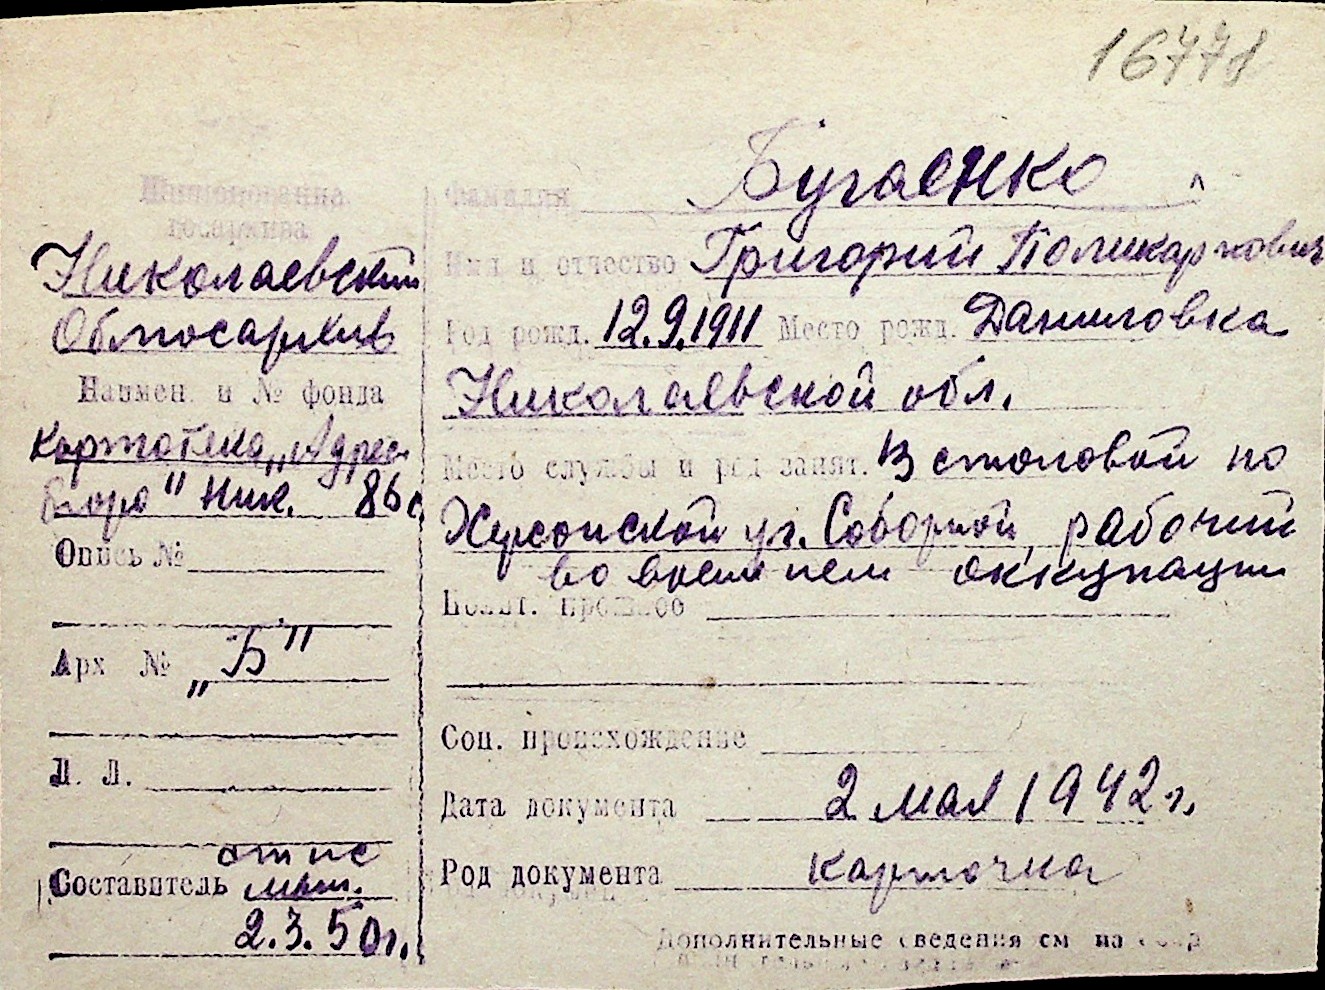 16771
Наименование
госархива
Николаевский
Облгосархив
Наимен. и № фонда
Картотека „Адрес-
бюро" Ник. 86с
Опись №
Арх № „Б"
Л. Л.
Составитель
2.3.50г.
Фамилия Бугаенко
Имя и отчество Григорий Поликарпович
Год рожд. 12.9.1911 Место рожд. Даниловка
Николаевской обл.
Место службы и род занят. В столовой по
Херсонской уг. Соборной, рабочий
во время нем оккупации
Полит. прошлое
Соц. происхождение
Дата документа 2 мая 1942 г.
Род документа карточка
Дополнительные сведения см на обор